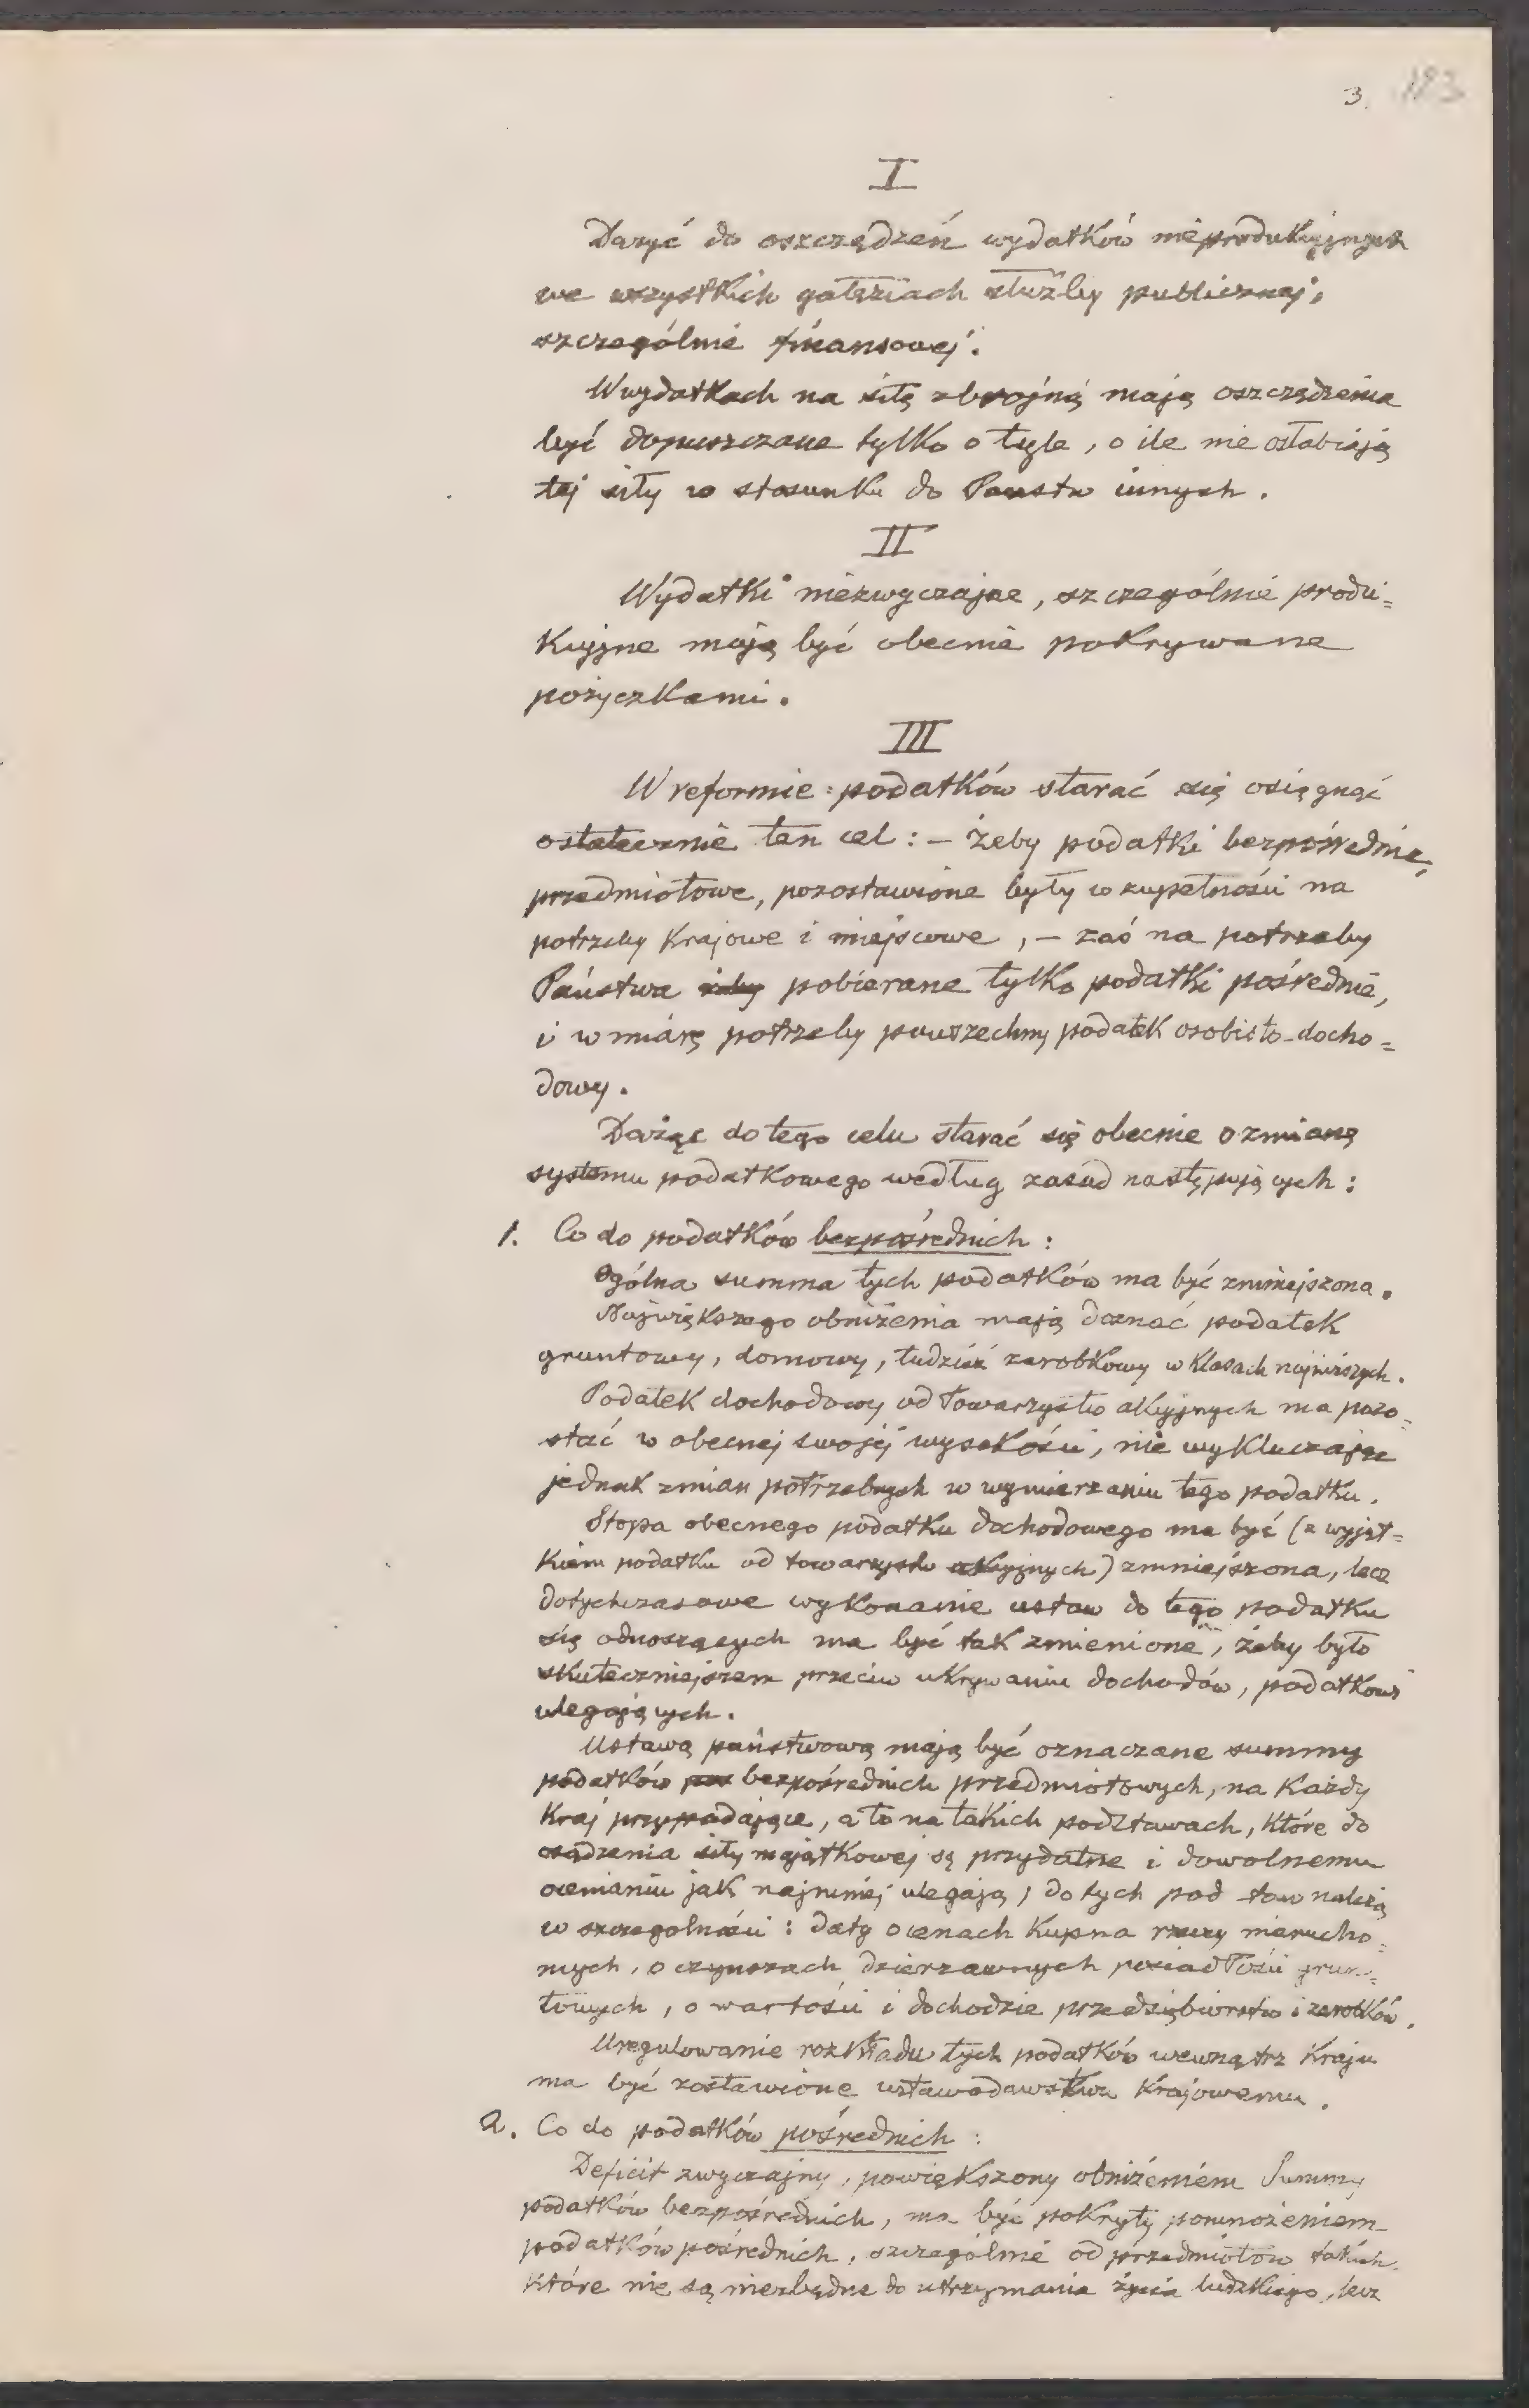 3. 183
I
Dążyć do oszczędzeń wydatków nieprodukcyjnych
we wszystkich gałęziach służby publicznej,
szczególnie finansowej.
W wydatkach na siłę zbrojną mają oszczędzenia
być dopuszczane tylko o tyle, o ile nie osłabiają
tej siły w stosunku do Państw innych.
II
Wydatki niezwyczajne, szczególnie produ=
kcyjne mają być obecnie pokrywane
pożyczkami.
III
W reformie podatków starać się osiągnąć
ostatecznie ten cel: – żeby podatki bezpośrednie,
przedmiotowe, pozostawione były w zupełności na
potrzeby Krajowe i miejscowe, – zaś na potrzeby
Państwa żeby pobierane tylko podatki pośrednie,
i w miarę potrzeby powszechny podatek osobisto-docho=
dowy.
Dążąc do tego celu starać się obecnie o zmianę
systemu podatkowego według zasad następujących:
1. Co do podatków bezpośrednich:
Ogólna summa tych podatków ma być zmniejszona.
Największego obniżenia mają doznać podatek
gruntowy, domowy, tudzież zarobkowy w klasach najniższych.
Podatek dochodowy od Towarzystw akcyjnych ma pozo=
stać w obecnej swojej wysokości, nie wykluczając
jednak zmian potrzebnych w wymierzaniu tego podatku.
Stopa obecnego podatku dochodowego ma być (z wyjąt=
kiem podatku od towarzystw akcyjnych) zmniejszona, lecz
dotychczasowe wykonanie ustaw do tego podatku
się odnoszących ma być tak zmienione, żeby było
skuteczniejszem przeciw ukrywaniu dochodów, podatkowi
ulegających.
Ustawą państwową mają być oznaczane summy
podatków bezpośrednich przedmiotowych, na Każdy
Kraj przypadające, a to na takich podstawach, które do
osądzenia siły majątkowej są przydatne i dowolnemu
ocenianiu jak najmniej ulegają; do tych pod staw należą
w szczególności: daty o cenach Kupna rzeczy nierucho=
mych, o czynszach dzierzawnych posiadłości grun=
towych, o wartości i dochodzie przedsiębiorstw i zarobków.
Uregulowanie rozkładu tych podatków wewnątrz Kraju
ma być zostawione ustawodawstwu Krajowemu.
2. Co do podatków pośrednich:
Deficit zwyczajny, powiększony obniżeniem Summy
podatków bezpośrednich, ma być pokryty pomnożeniem
podatków pośrednich, szczególnie od przedmiotów takich
które nie są niezbędne do utrzymania życia ludzkiego, lecz